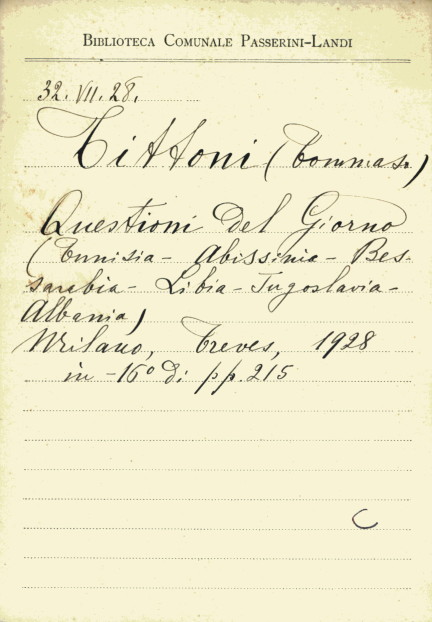 BIBLIOTECA COMUNALE PASSERINI-LANDI
32. VII. 28.
Tittoni (Tommaso)
Questioni del Giorno
(Tunisia - Abissinia - Bes-
sarabia - Libia - Jugoslavia -
Albania)
Milano, Treves, 1928
in -16° di pp. 215
C